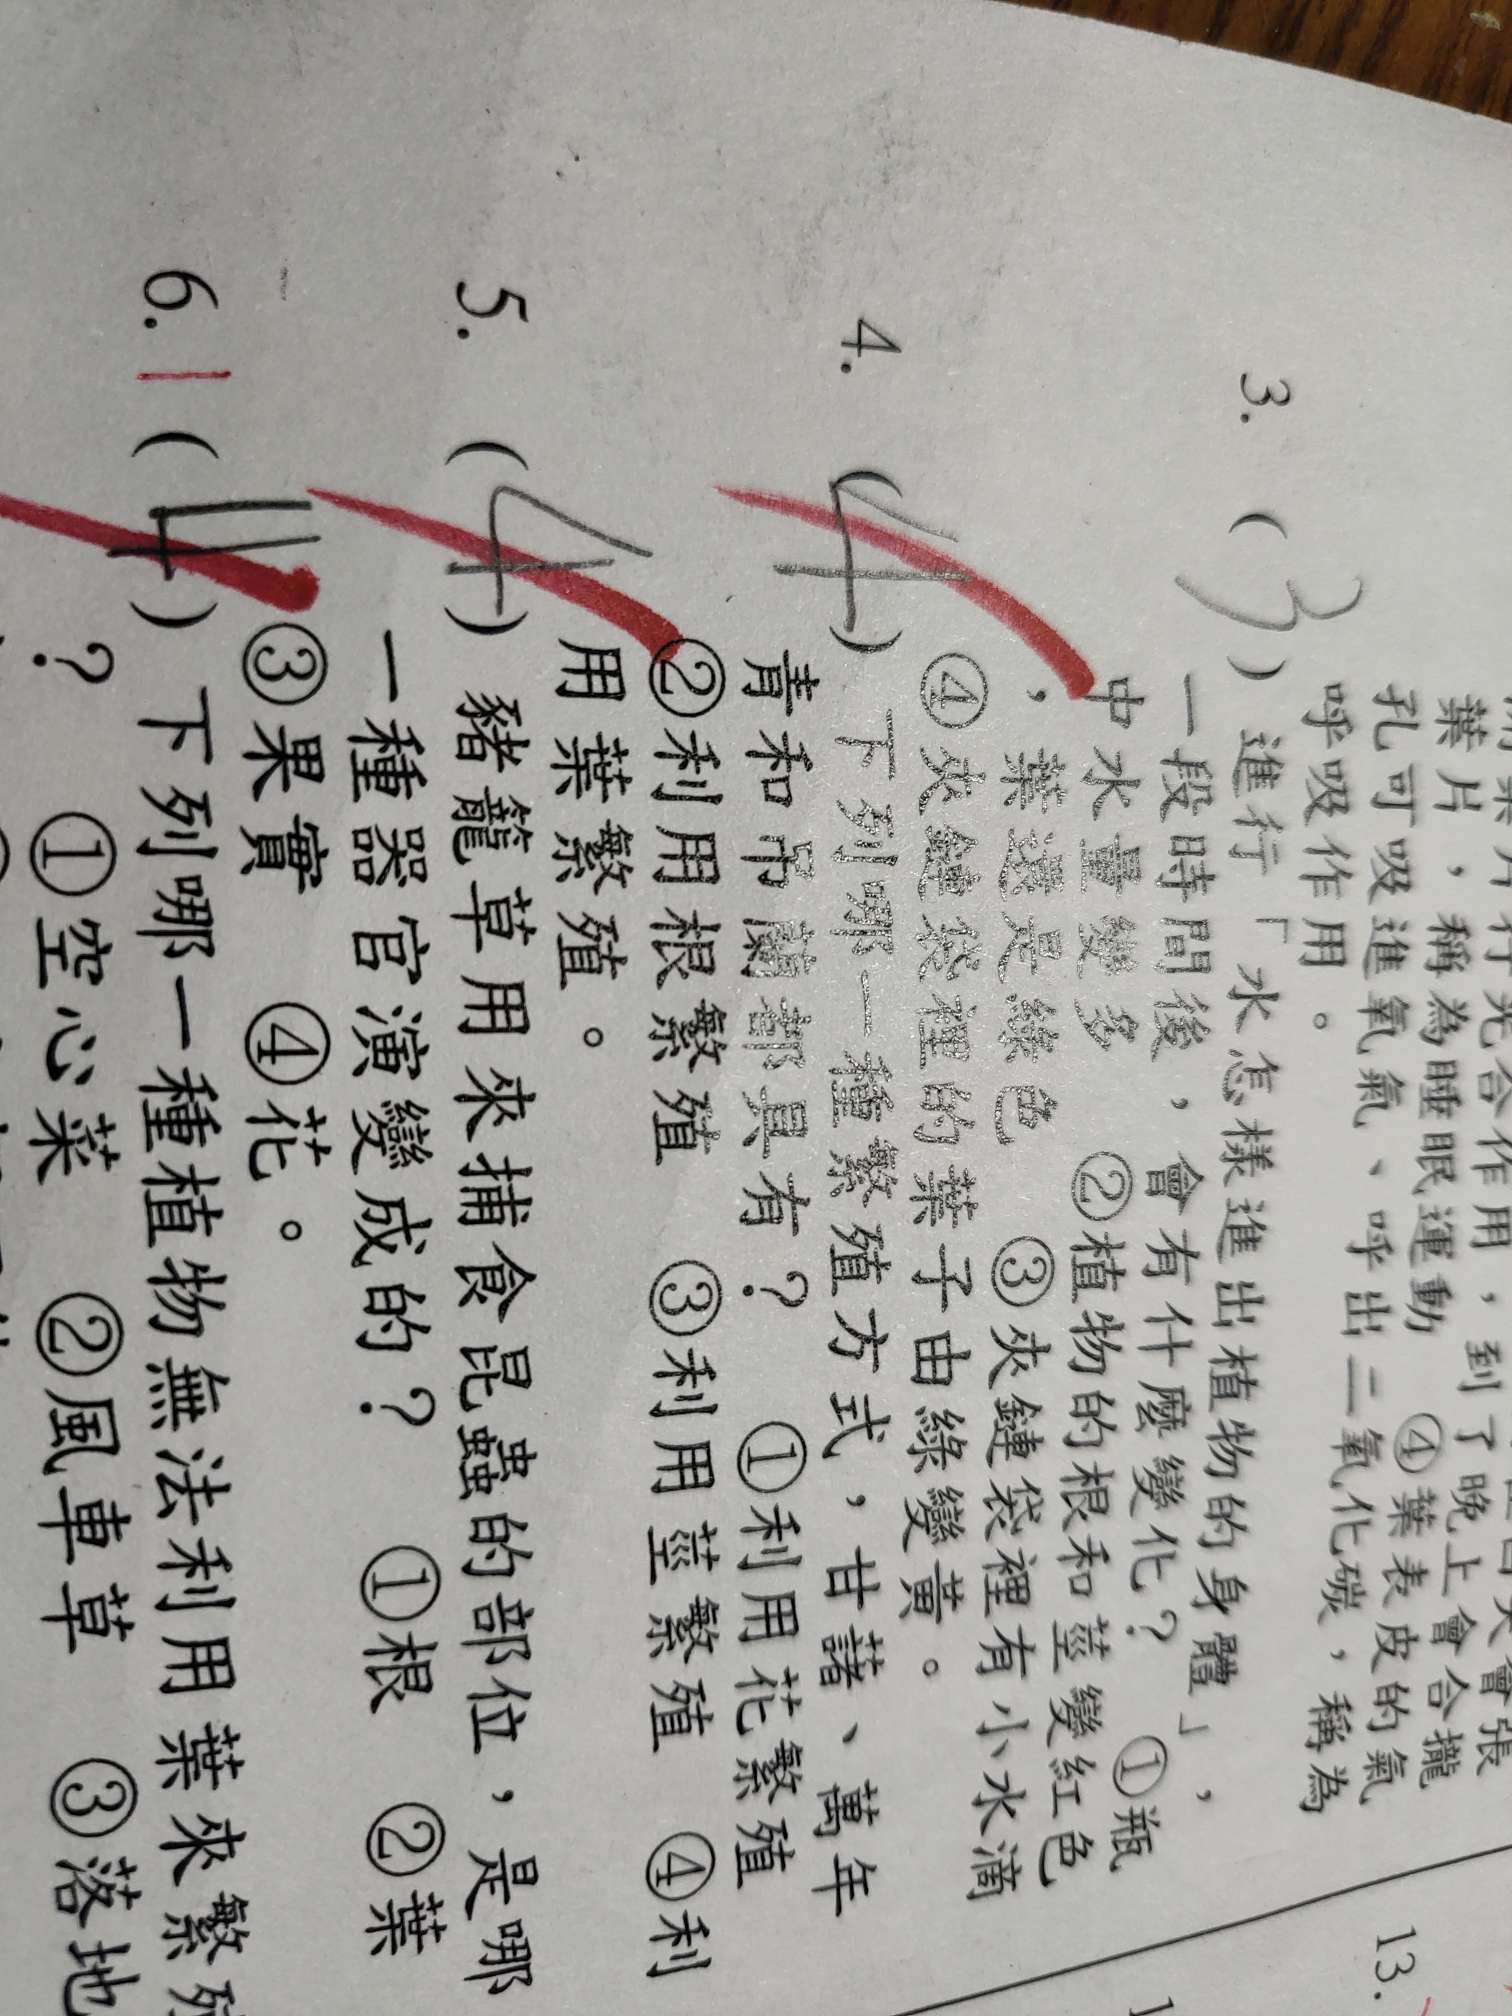 葉片，稱為睡眠運動 ④葉表皮的氣
孔可吸進氧氣、呼出二氧化碳，稱為
呼吸作用。
3. (3) 進行「水怎樣進出植物的身體」，
一段時間後，會有什麼變化？ ①瓶
中水量變多 ②植物的根和莖變紅色
，葉還是綠色 ③夾鏈袋裡有小水滴
④夾鏈袋裡的葉子由綠變黃。
4. (4) 下列哪一種繁殖方式，甘藷、萬年
青和吊蘭都具有？ ①利用花繁殖
②利用根繁殖 ③利用莖繁殖 ④利
用葉繁殖。
5. (4) 豬籠草用來捕食昆蟲的部位，是哪
一種器官演變成的？ ①根 ②葉
③果實 ④花。
6. 1 (4) 下列哪一種植物無法利用葉來繁殖
？ ①空心菜 ②風車草 ③落地
13.